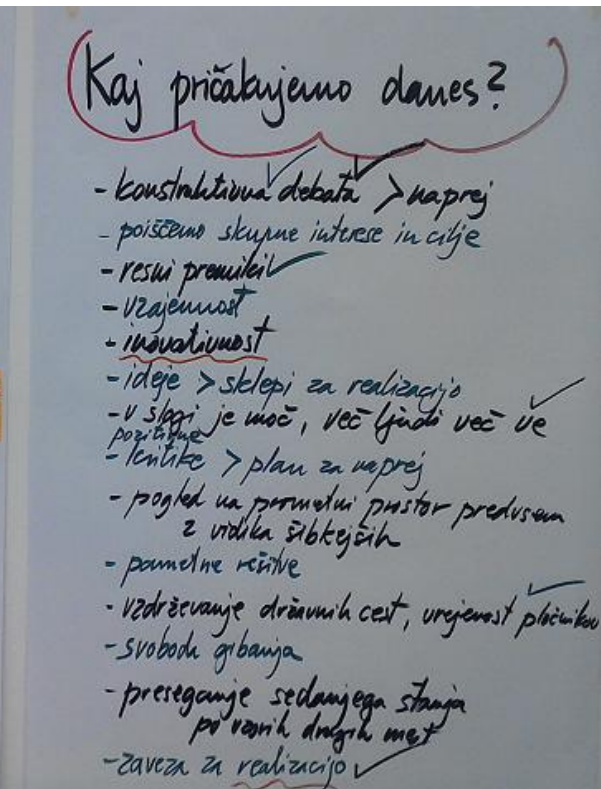 Kaj pričakujemo danes?
- konstruktivna debata > naprej
- poiščemo skupne interese in cilje
- resni premiki
- vzajemnost
- inovativnost
- ideje > sklepi za realizacijo
- v slogi je moč, več ljudi več ve
pozitivne
- kritike > plan za naprej
- pogled na prometni prostor predvsem
z vidika šibkejših
- pametne rešitve
- vzdrževanje državnih cest, urejenost pločnikov
- svoboda gibanja
- preseganje sedanjega stanja
po vzorih drugih mest
- zaveza za realizacijo